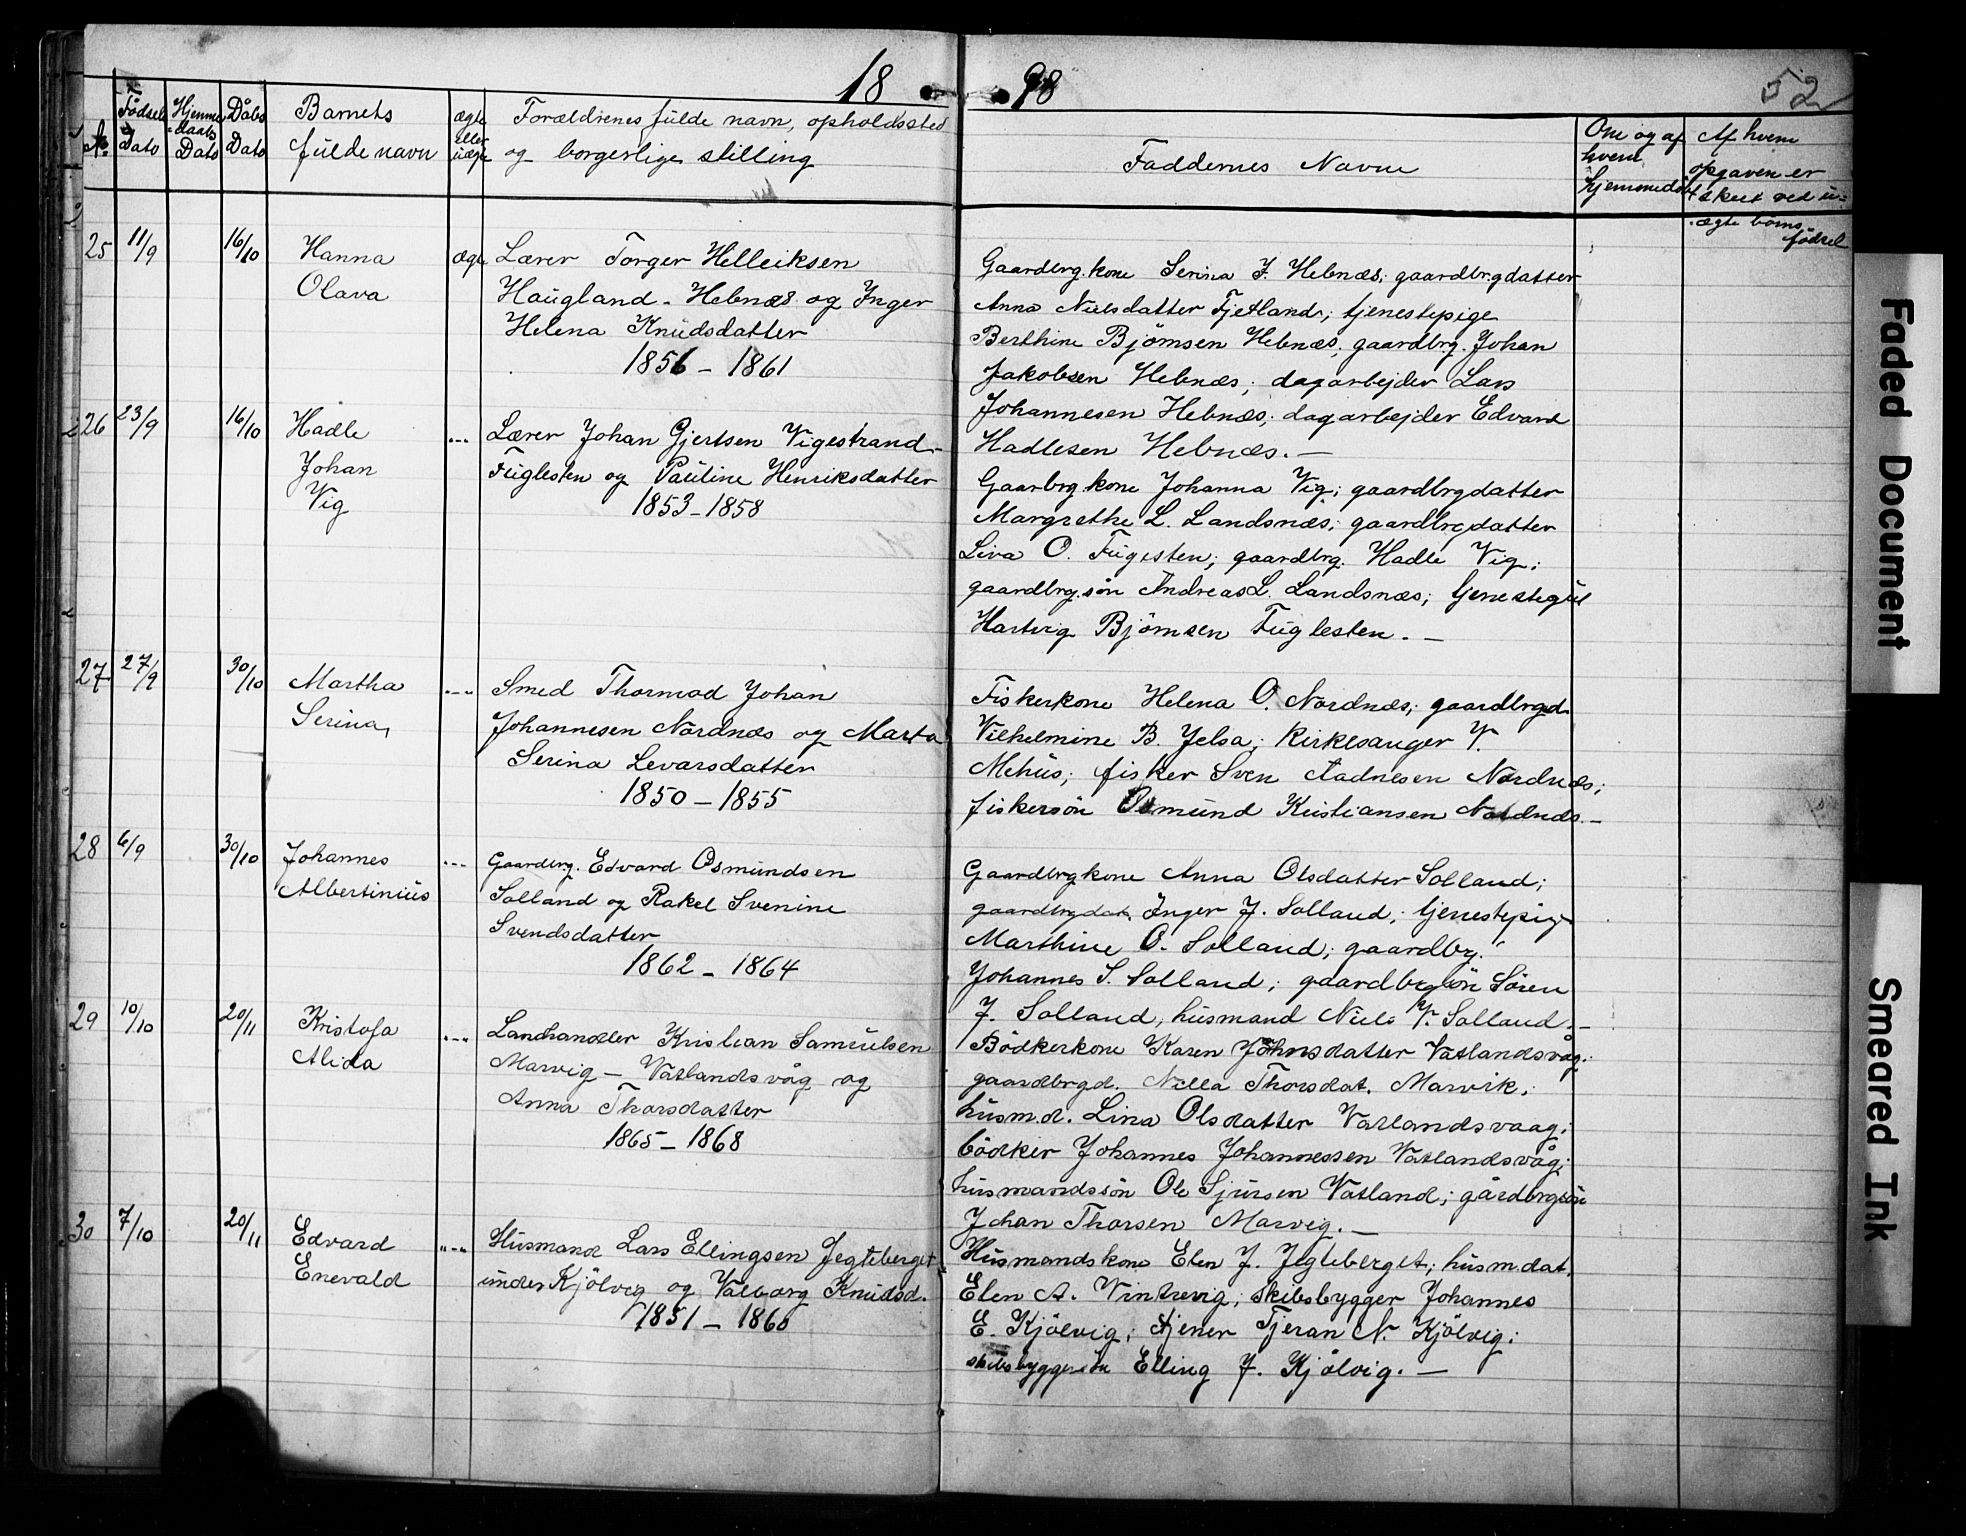 18 98
52
№
Födsels Dato
Hjemmedaabs Dato
Dåbs Dato
Barnets fulde navn
ægte eller uægte
Forældrenes fulde navn, opholdssted
og borgerlige stilling
Faddernes Navne
Om og af hvem hjemmedöbt
Af hvem opgaven er skeet ved u=
ægte börns födsel
25 11/9 16/10 Hanna Olava ægte
Lærer Torger Helleiksen
Haugland - Hebnæs og Inger
Helena Knudsdatter
1856 - 1861
Gaardbrg.kone Serina J. Hebnæs; gaardbrgdatter
Anna Nielsdatter Fjetland; tjenestepige
Berthine Bjömsen Hebnæs; gaardbrg. Johan
Jakobsen Hebnæs; dagarbejder Lars
Johannesen Hebnæs; dagarbejder Edvard
Hadlesen Hebnæs. —
26 23/9 16/10 Hadle Johan Vig -"-
Lærer Johan Gjertsen Vigestrand -
Fuglesten og Pauline Henriksdatter
1853 - 1858
Gaarbrg.kone Johanna Vig; gaardbrgdatter
Margrethe L. Landsnæs; gaardbrgdatter
Liva O. Fugesten; gaardbrg. Hadle Vig;
gaardbrg.sön Andreas L. Landsnæs; tjenestegut
Hartvig Bjömsen Fuglesten. —
27 27/9 30/10 Martha Serina -"-
Smed Thormod Johan
Johannesen Nordnæs og Marta
Serina Levarsdatter
1850 - 1855
Fiskerkone Helena O. Nordnæs; gaardbrgd.
Vilhelmine B. Jelsa; Kirkesanger V.
Mehus; fisker Sven Aadnesen Nordnæs;
fiskersön Osmund Kristiansen Nordnæs. -
28 6/9 30/10 Johannes Albertinius -"-
Gaardbrg. Edvard Osmundsen
Solland og Rakel Svenine
Svendsdatter
1862 - 1864
Gaardbrgkone Anna Olsdatter Solland;
gaardbrgdat. Inger J. Solland; tjenestepige
Marthine O. Solland; gaardbrg.
Johannes S. Solland; gaardbrgsön Sören
J. Solland; husmand Niels V. Solland. -
29 10/10 20/11 Kristofa Alida -"-
Landhandler Kristian Samuelsen
Marvig - Vatlandsvåg og
Anna Thorsdatter
1865 - 1868
Bödkerkone Karen Johnsdatter Vatlandsvåg;
gaardbrgd. Nella Thorsdat. Marvik;
husm.d. Lina Olsdatter Vatlandsvaag;
bödker Johannes Johannessen Vatlandsvåg;
husmandssön Ole Sjursen Vatland; gårdbrgsön
Johan Thorsen Marvig. —
30 7/10 20/11 Edvard Enevald -"-
Husmand Lars Ellingsen Jegteberget
under Kjölvig og Valborg Knudsd.
1851 - 1860
Husmandskone Elen J. Jegteberget; husm.dat.
Elen A. Vintrevig; skibsbygger Johannes
E. Kjölvig; tjener Tjeran N. Kjölvig;
skibsbyggersön Elling J. Kjölvig. —
Faded Document
Smeared Ink